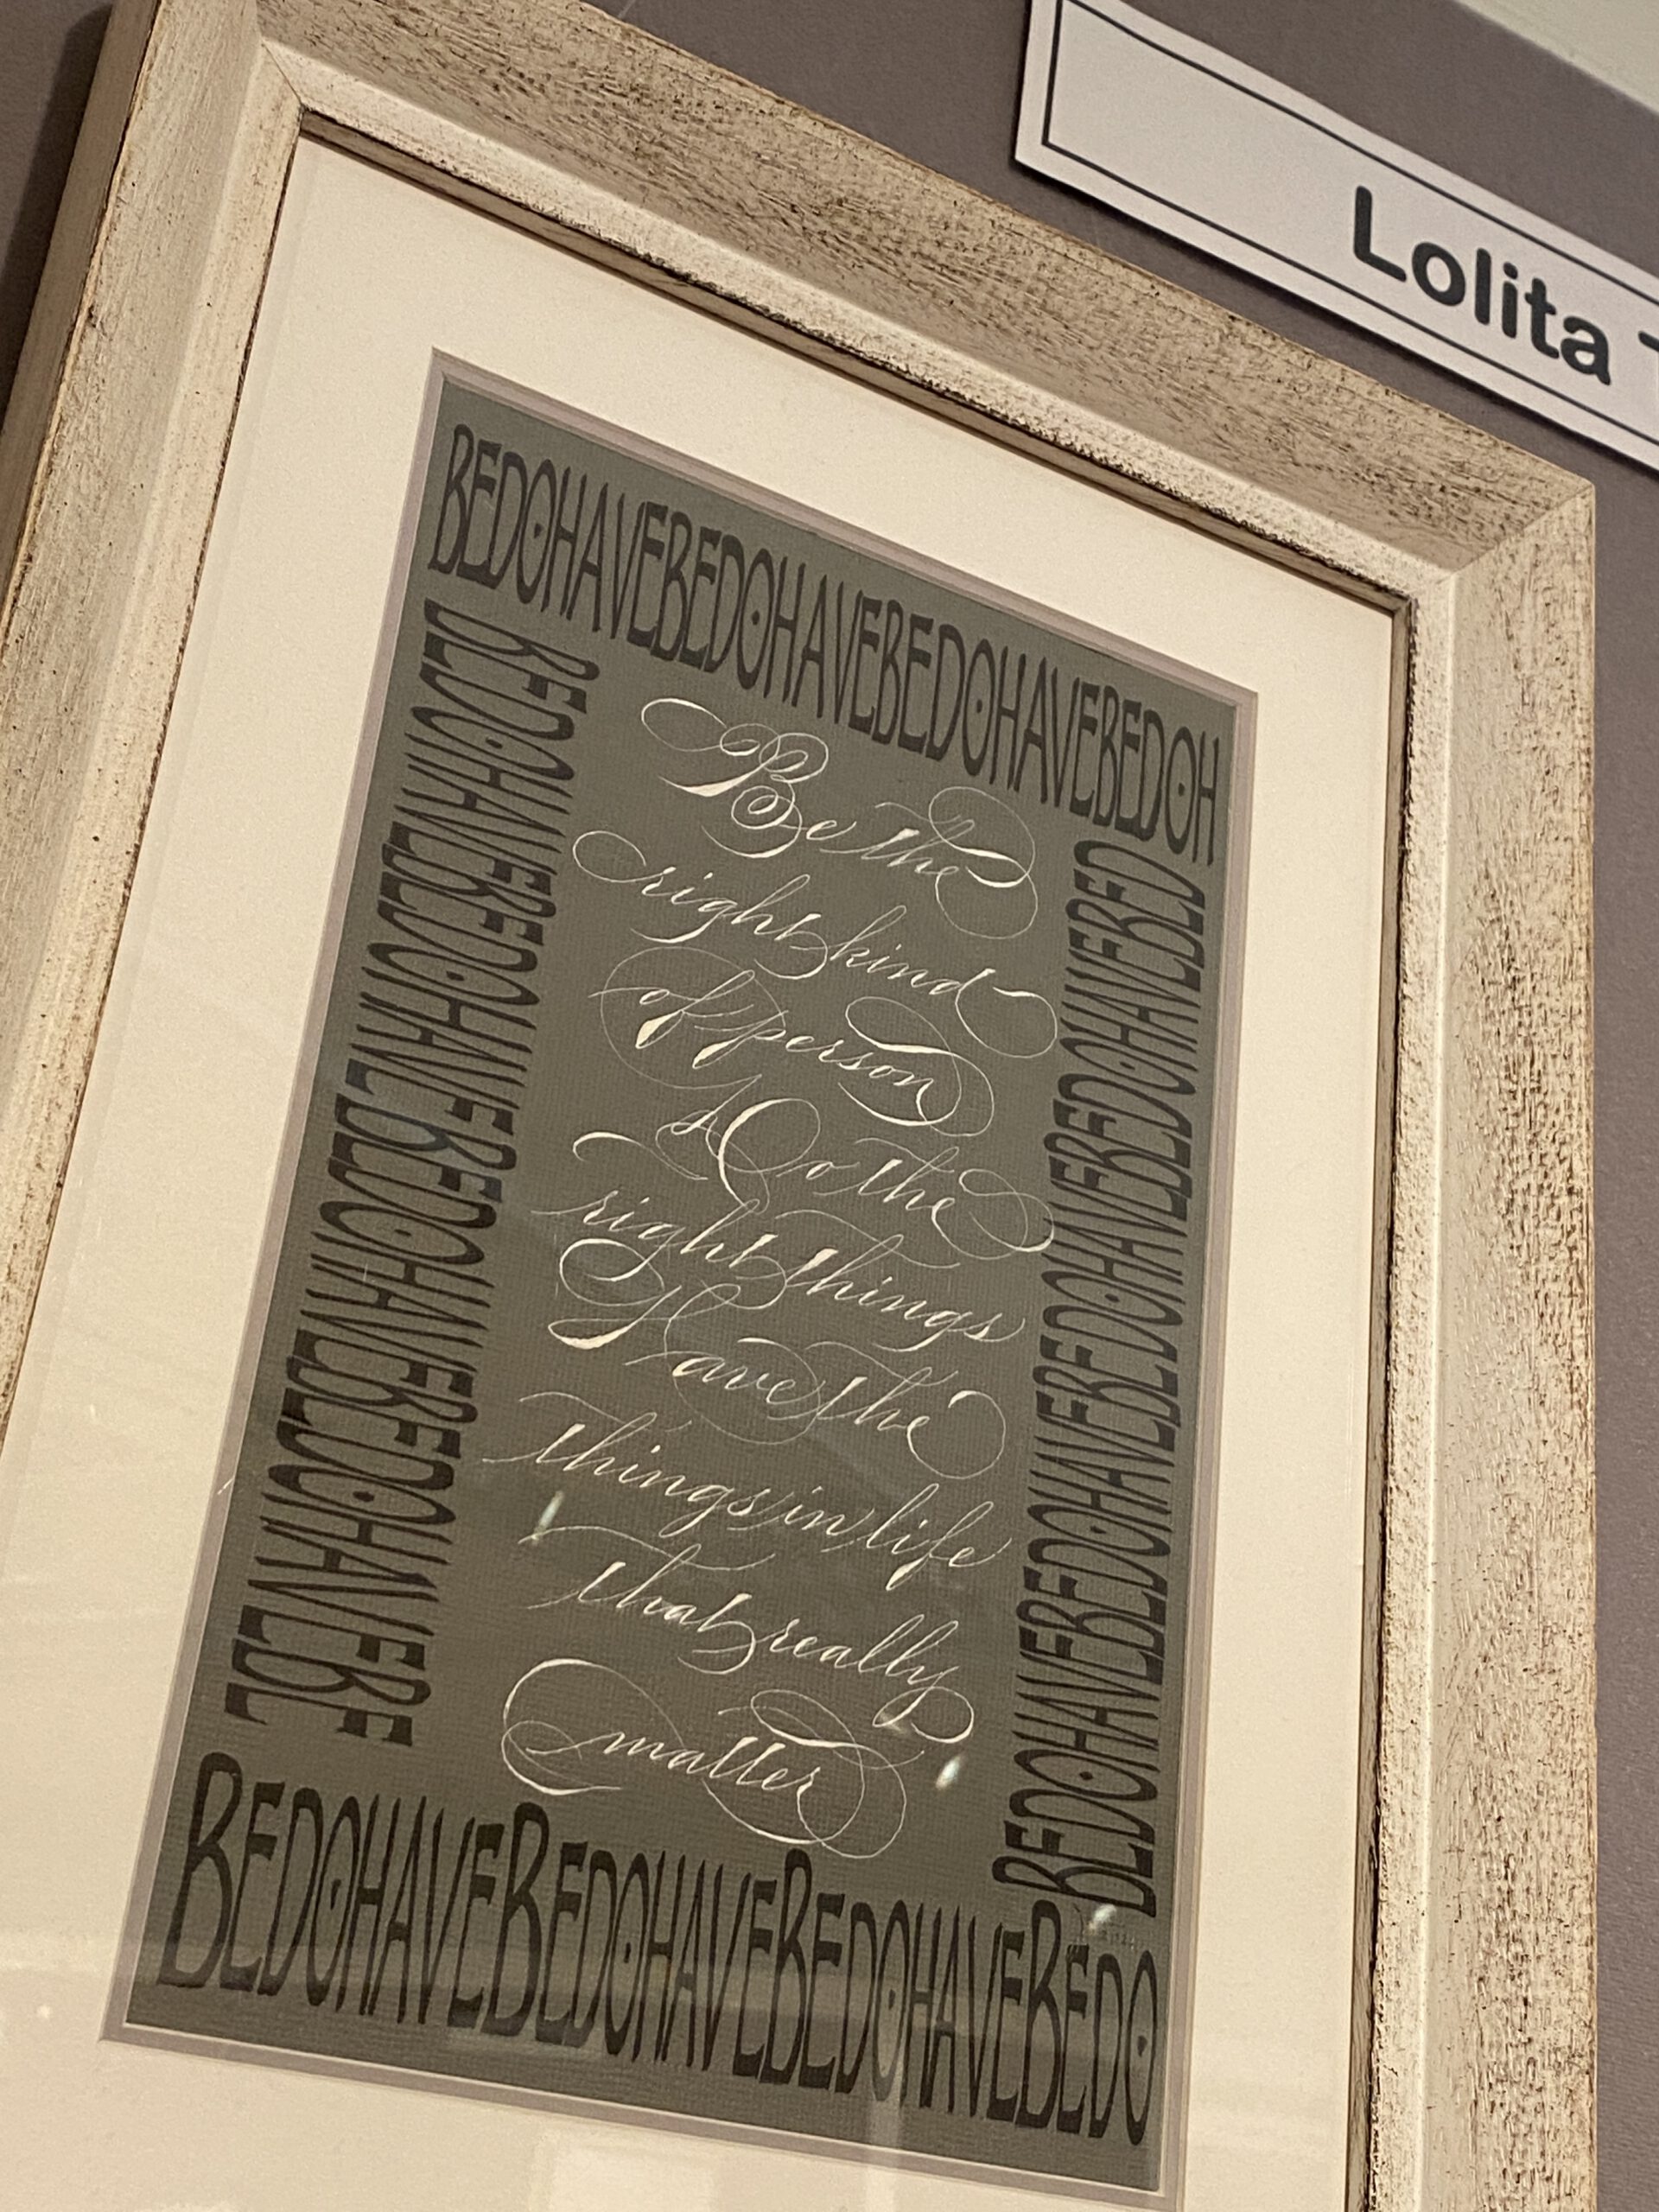 Lolita
BEDOHAVEBEDOHAVEBEDOHAVEBEDOH
BEDOHAVEBEDOHAVEBEDOHAVEBEDOHAVEBE
Be the
right kind
of person
dO the
right things
Have the
things in life
that really
matter
BEDOHAVEBEDOHAVEBEDOHAVEBEDOHAVEBED
BEDOHAVEBEDOHAVEBEDOHAVEBEDO